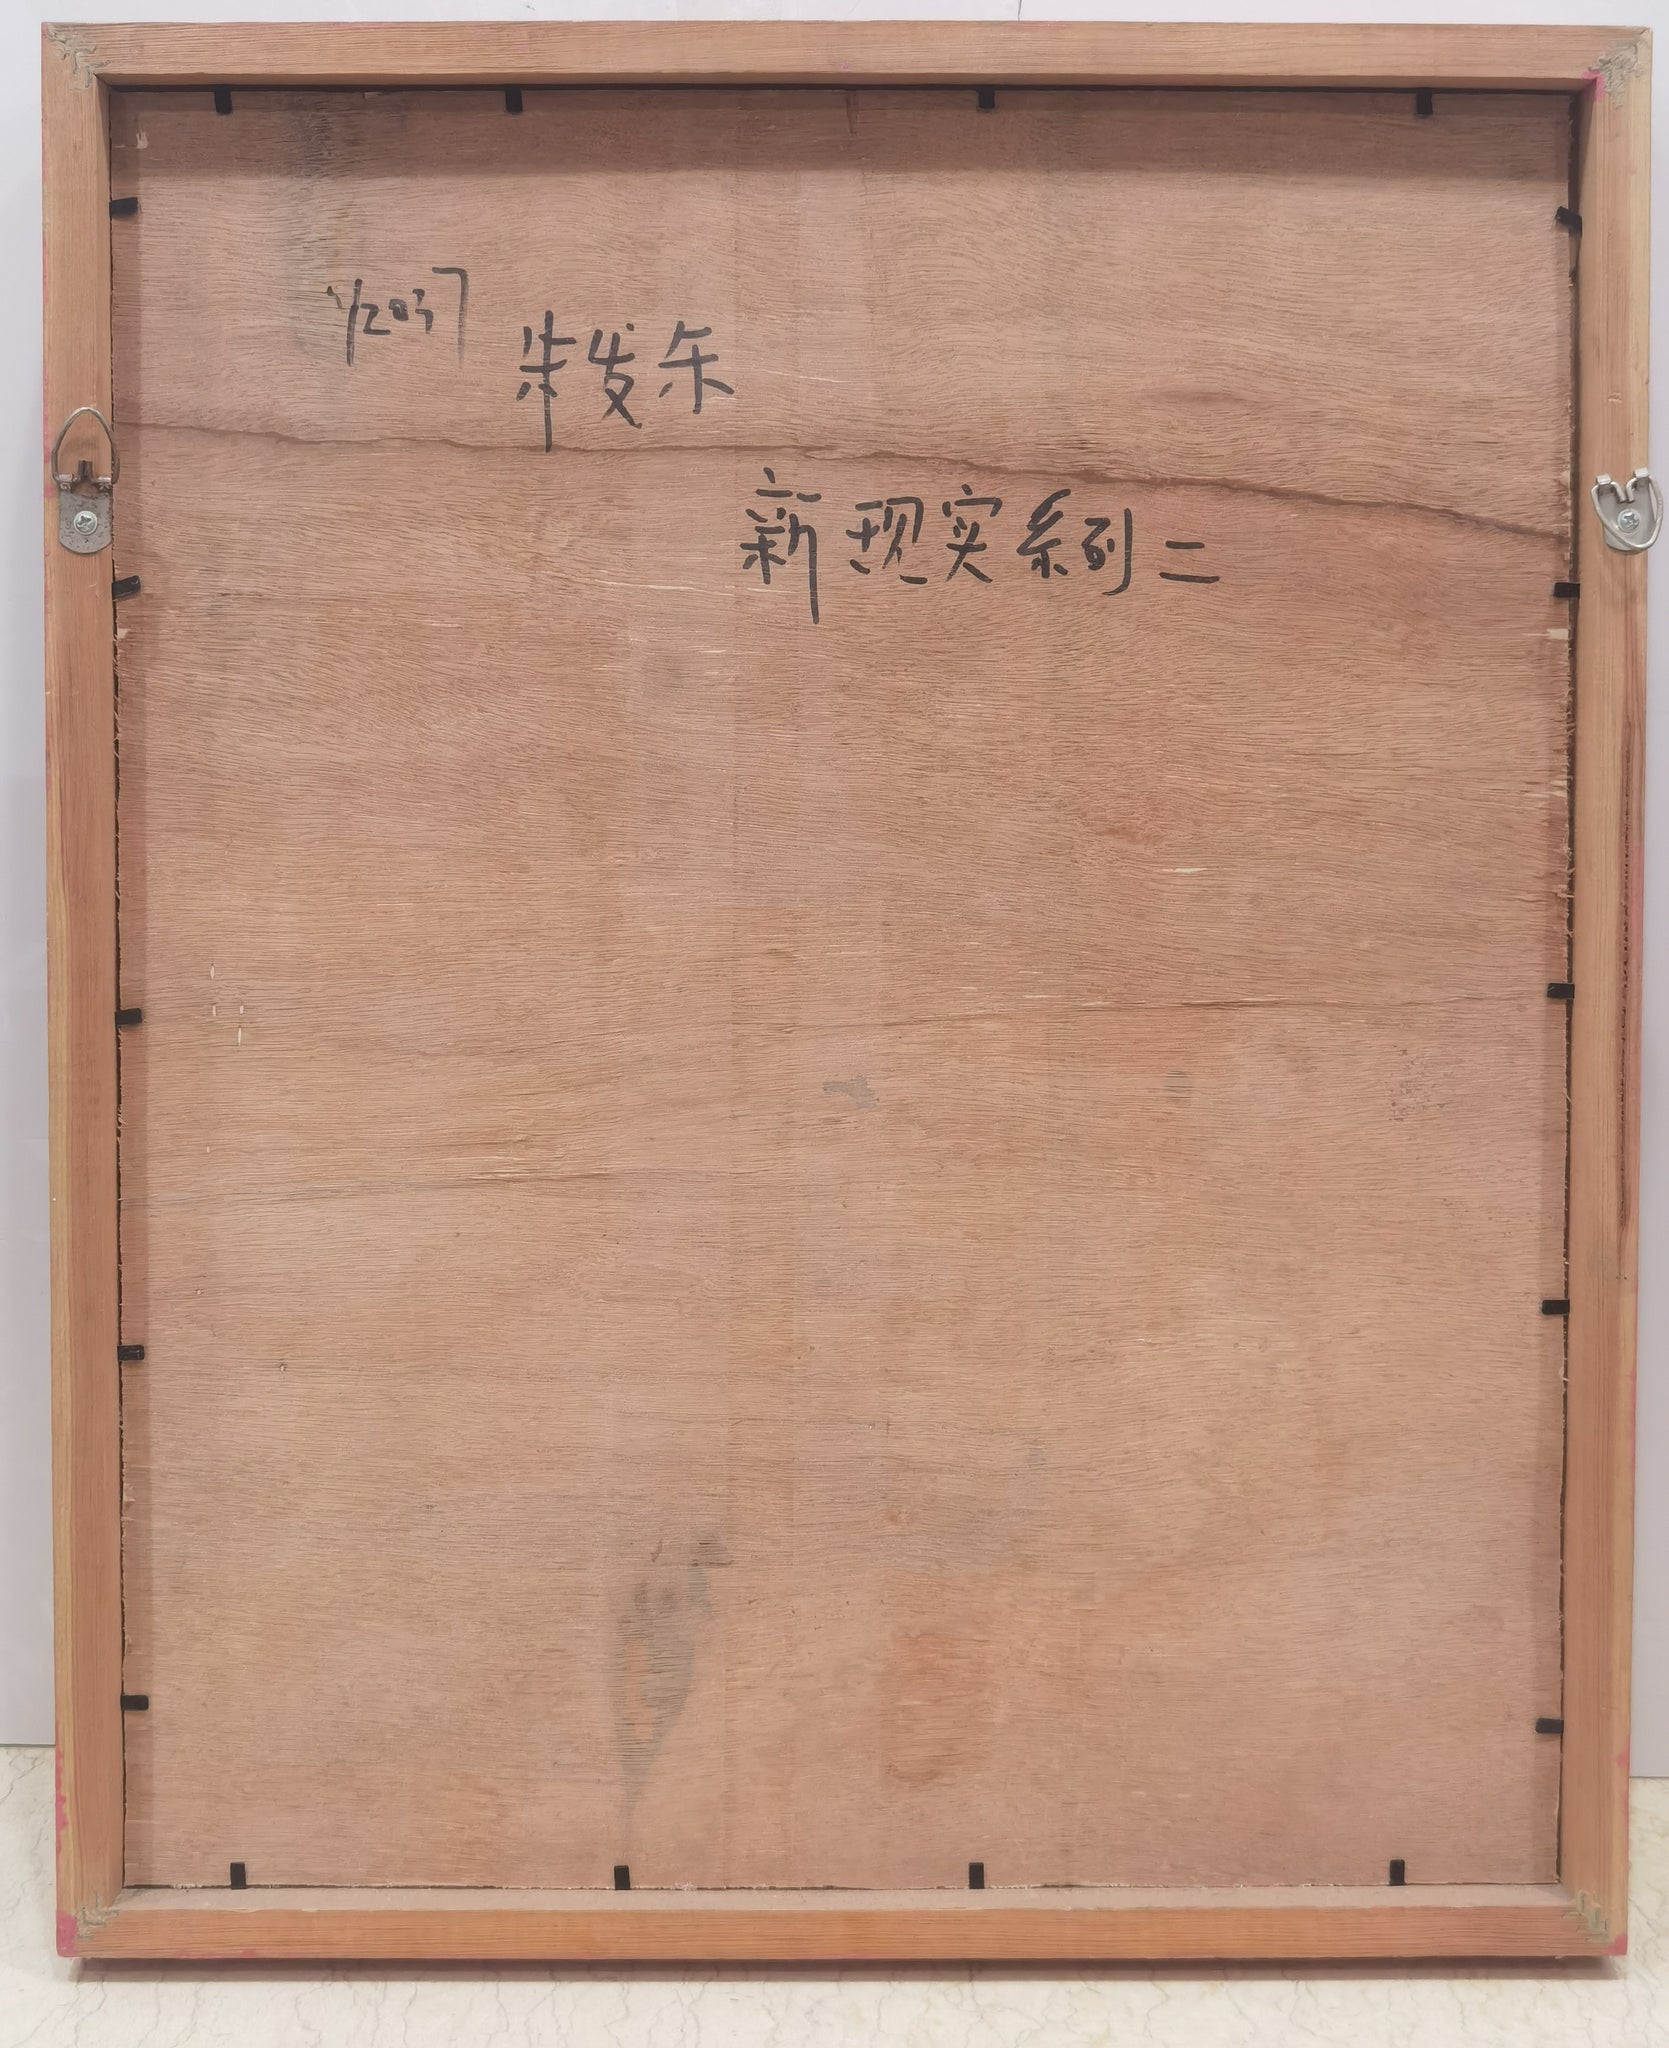 Y2037
朱发东
新现实系列二